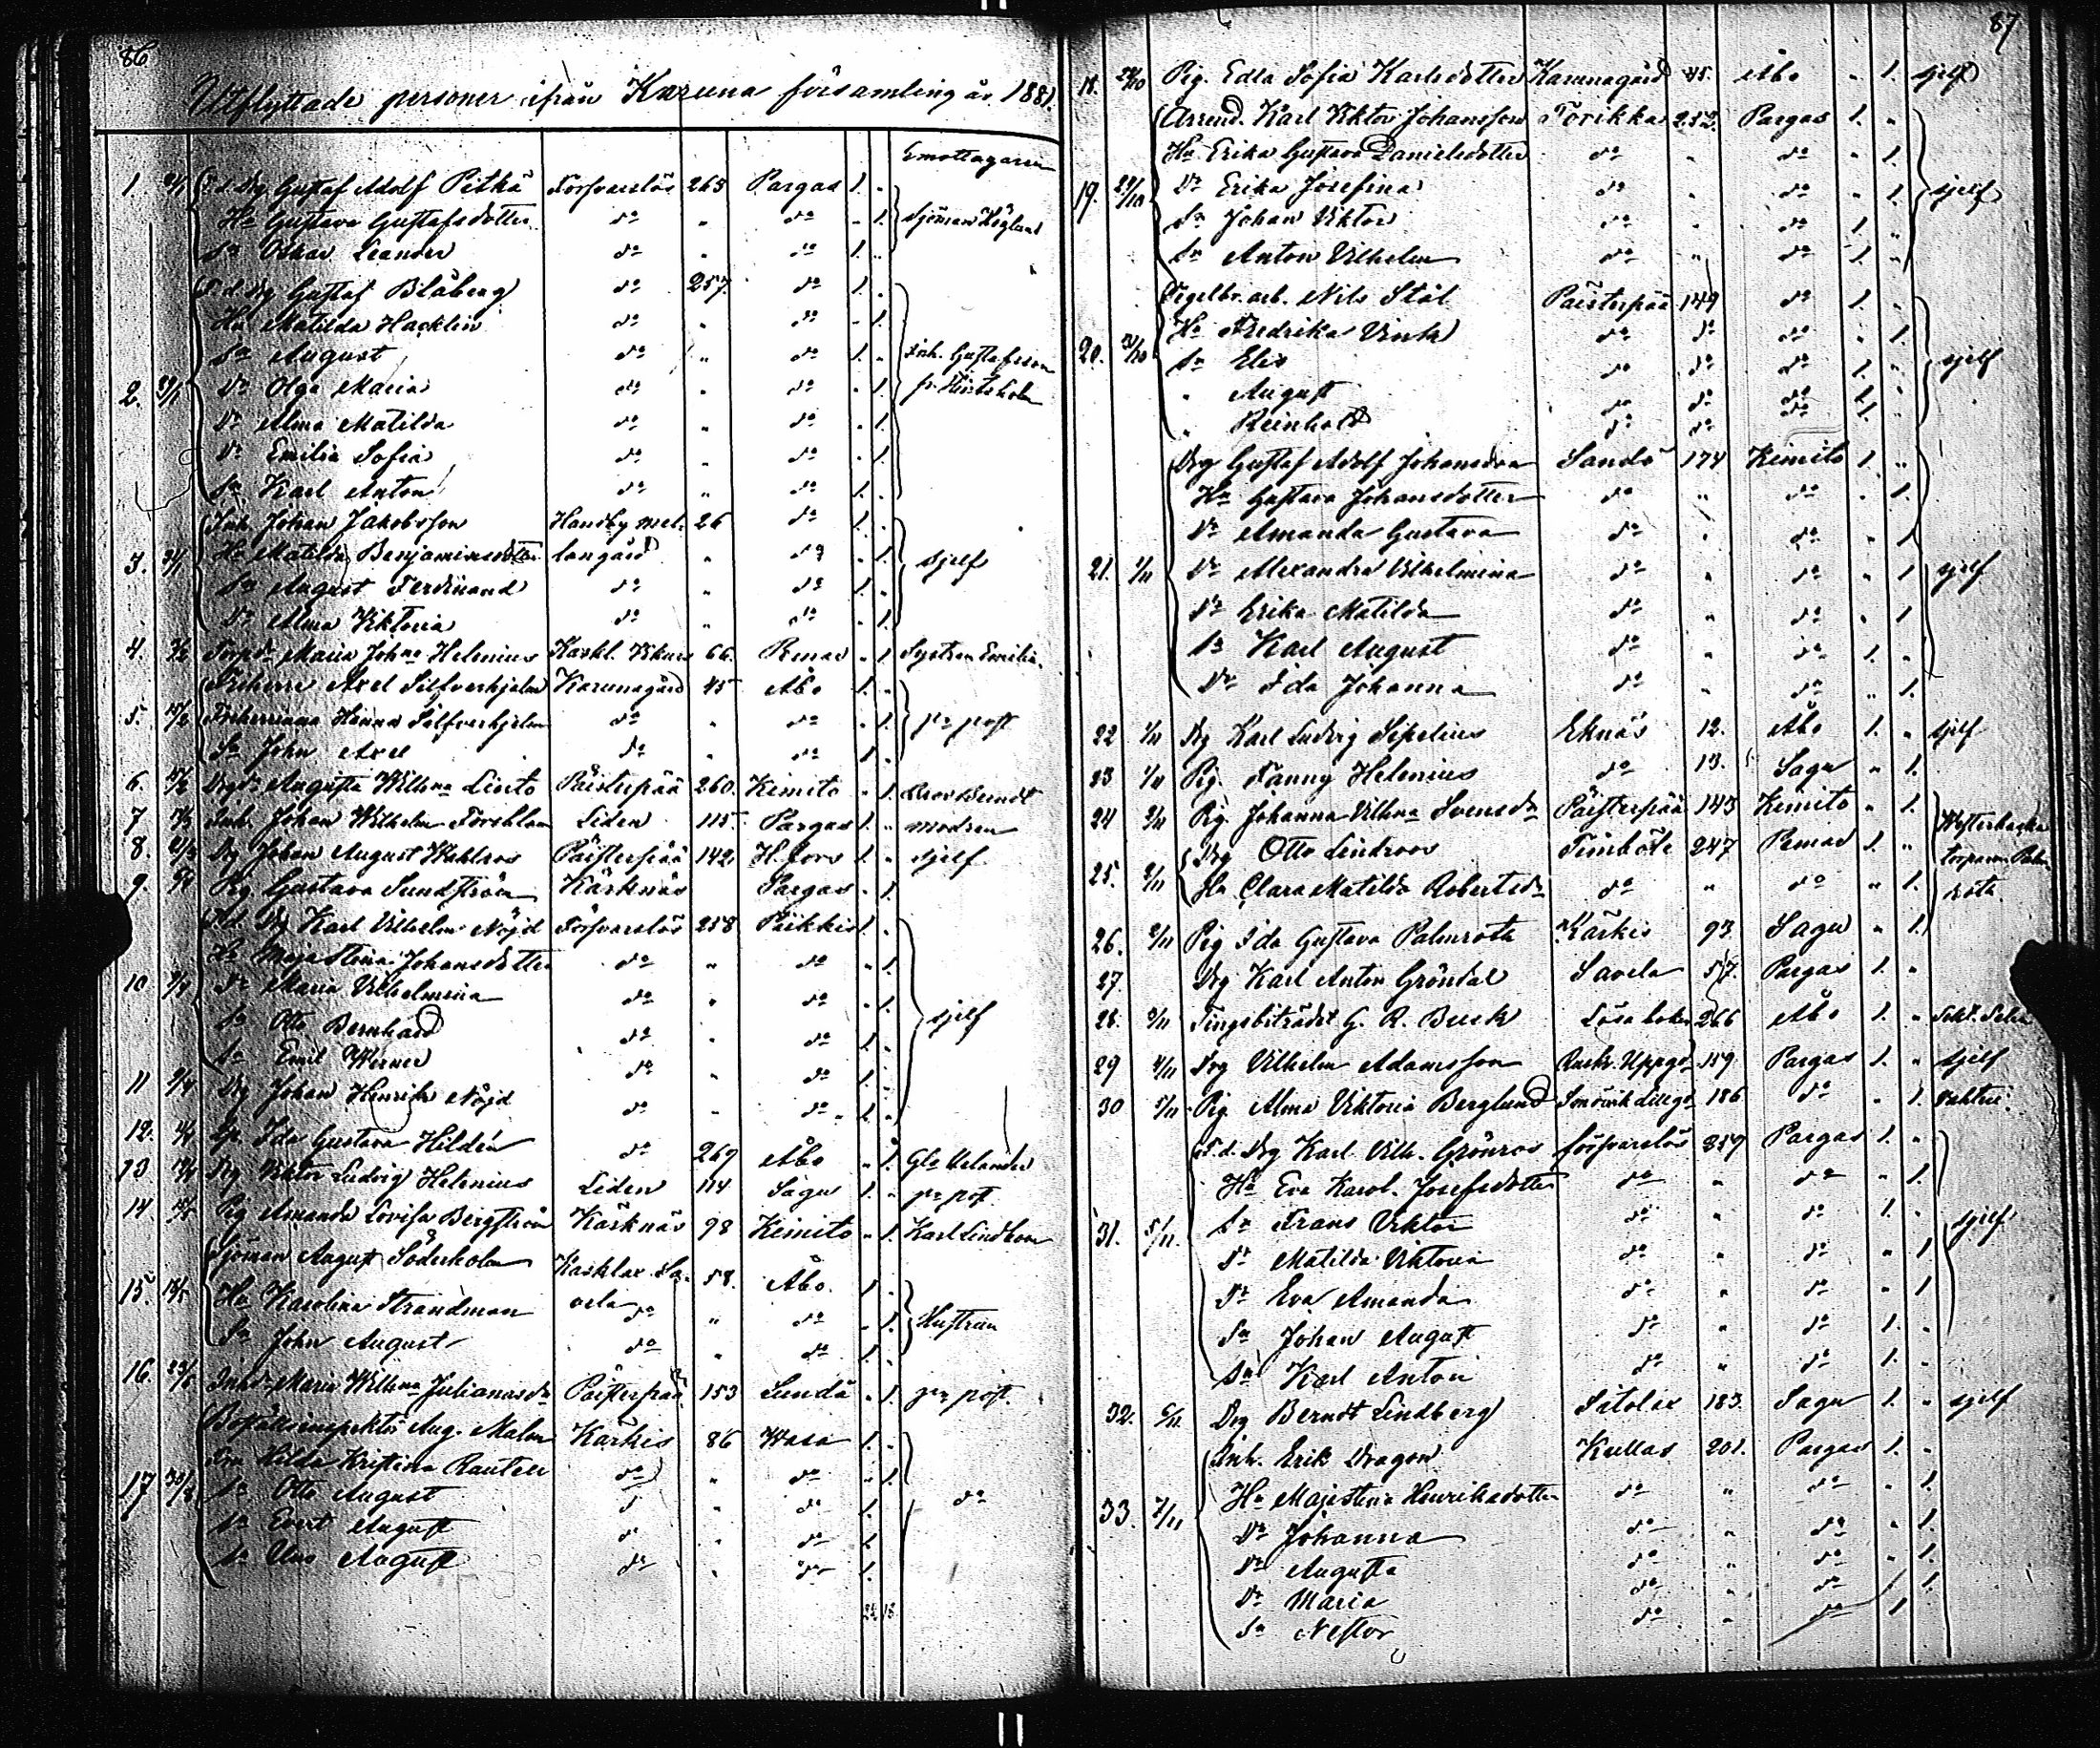 86
Utflyttade personer ifrån Karuna församling år 1881.
Emottagaren
1 F.d. Drg Gustaf Adolf Pitkä Försvarslös 263 Pargas 1. „ Sjöman Höglund
Hu Gustava Gustafsdotter do „ do „ 1.
Sn Oskar Leander do „ do 1. „
2. F.d. Drg Gustaf Blåberg do 257. do 1. „ Inh. Gustafsson
Hu Matilda Hacklin do „ do „ 1.
Sn August do „ do 1. „
Dr Olga Maria do „ do „ 1.
Dr Alma Matilda do „ do „ 1.
Dr Emilia Sofia do „ do „ 1.
Sn Karl Anton do „ do 1. „
3. Inh. Johan Jakobsson Handby mel- 26 do 1. „ sjelf
Hu Matilda Benjaminsdotter langård „ do „ 1.
Sn August Ferdinand do „ do 1. „
Dr Alma Viktoria do „ do „ 1.
4. Torpdr Maria Johna Helenius 66. Pemar „ 1. Systren Emilia.
5. Friherre Axel Silfverhjelm Karunagård 45 Åbo 1. „ pr post
Friherrinna Hanna Silfverhjelm do „ do „ 1.
Sn John Axel do „ do 1. „
6. Drgdr Augusta Wilhna Liesto Päisterpää 260. Kimito „ 1.
7 Inh. Johan Wilhelm Förnblom Liden 115. Pargas 1. „ modren
8. Drg Johan August Wahlros Päisterpää 142. H.fors 1. „ sjelf
9. Pig Gustava Sundström Kärknäs Pargas „ 1.
10 F.d. Drg Karl Vilhelm Nöjd Försvarslös 258 Piikkis 1. „ sjelf
Hu Maja Stina Johansdotter do „ do „ 1.
Dr Maria Vilhelmina do „ do „ 1.
Sn Otto Bernhard do „ do 1. „
Sn Emil Werner do „ do 1. „
11 9/4 Drg Johan Henrik Nöjd do „ do 1. „
12. Gr. Ida Gustava Hildén do 267 Åbo „ 1. Gla Helander
13 Drg Viktor Ludvig Helenius Liden 114 Sagu 1. „ pr post.
14 Pig Amanda Lovisa Bergström Kärknäs 98 Kimito „ 1. Karl Lindbom
15. Sjöman August Söderholm Kasklax Sa- 58. Åbo. 1. „ Hustrun
Hu Karolina Strandman vela do „ do „ 1.
Sn John August do „ do 1.
16. Inhdr Maria Wilhna Julianasdr Päisterpää 153 Lundå „ 1. pr post.
17 Bopålsinspektör Aug. Malm Kärkis 86 Wasa 1. „ do
Fru Hilda Kristina Rautell do „ do „ 1.
Sn Otto August d „ do 1.
Sn Evert August d „ do 1.
Sn Uno August do „ do 1.
87
18. Pig. Edla Sofia Karlsdotter Karunagård 45. Åbo „ 1. sjelf
19. Arrend. Karl Viktor Johansson Torikka 252. Pargas 1. „ sjelf
Hu Erika Gustava Danielsdotter do „ do „ 1.
Dr Erika Josefina do „ do „ 1.
Sn Johan Viktor do „ do 1. „
Sn Anton Vilhelm do „ do 1. „
20. Tegelbr. arb. Nils Stål Päisterpää 149 do 1. „ sjelf
Hu Fredrika Vink do do do „ 1.
Sn Elis do do do 1. „
„ August do do do 1. „
„ Reinhold do do do 1. „
21. 1/11 Drg Gustaf Adolf Johansson Sandö 174 Kimito 1. „ sjelf
Hu Gustava Johansdotter do „ do „ 1.
Dr Amanda Gustava do „ do „ 1
Dr Alexandra Vilhelmina do „ do „ 1
Dr Erika Matilda do „ do „ 1
Sn Karl August do „ do 1. „
Dr Ida Johanna do „ do „ 1.
22 1/11 Drg Karl Ludvig Sipelius Eknäs 12. Åbo 1. „ sjelf
23 1/11 Pig. Fanny Helenius do 13. Sagu „ 1.
24 2/11 Pig. Johanna Vilhna Svensdr Päisterpää 143 Kimito „ 1.
25. 2/11 Drg Otto Lindroos Timböle 247 Pemar 1. „
Hu Clara Matilda Robertsdr do „ do „ 1.
26. 2/11 Pig Ida Gustava Palmrota Kärkis 93 Sagu „ 1.
27. Drg Karl Anton Gröndal Savela 57. Pargas 1. „
28. Tingsbiträdet G. R. Busk Lösa boken 266 Åbo 1. „
29 4/11 Drg Vilhelm Adamsson 159 Pargas 1. „ sjelf
30 5/11 Pig. Alma Viktoria Berglund 186 do „ 1.
31. 5/11. F.d. Drg Karl Vilh. Grönros försvarslös 259 Pargas 1. „ sjelf
Hu Eva Karol. Josefsdotter do „ do „ 1.
Sn Frans Viktor do „ do 1. „
Dr Matilda Viktoria do „ do „ 1
Dr Eva Amanda do „ do „ 1
Sn Johan August do „ do 1. „
Sn Karl Anton do „ do 1. „
32. Drg Berndt Lindberg Sitolax 183. Sagu 1. „ sjelf
33. 7/11 Inh. Erik Dragon Kullas 201. Pargas 1. „
Hu Majastina Henriksdotter do „ do „ 1.
Dr Johanna do „ do „ 1.
Dr Augusta do „ do „ 1.
Dr Maria do „ do „ 1.
Sn Nestor do „ do 1